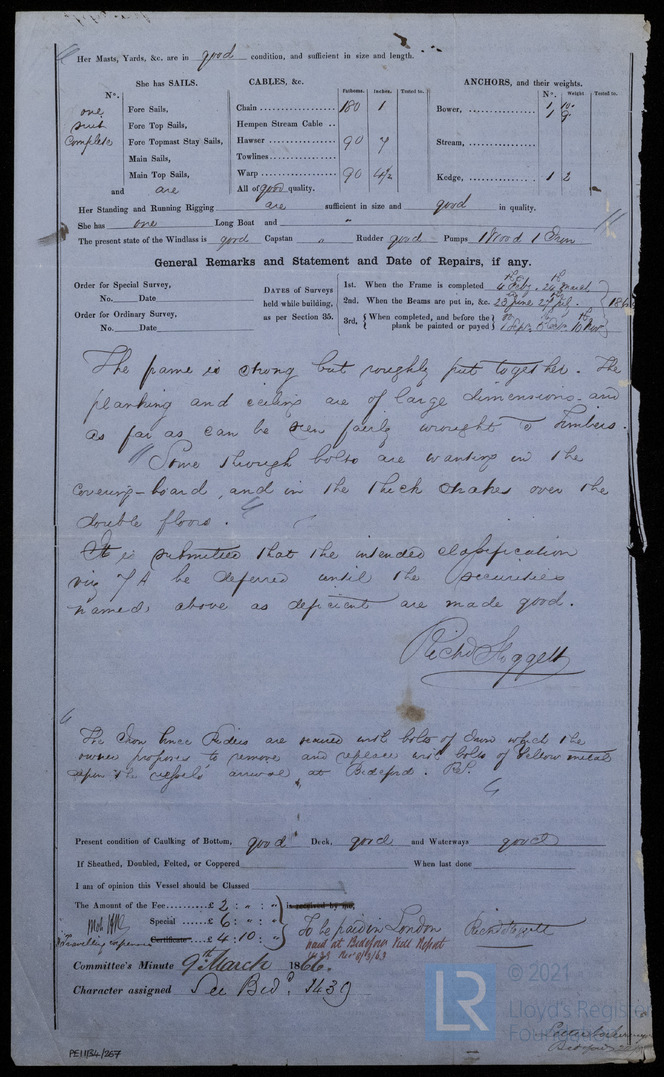 Her Masts, Yards, &c. are in good condition, and sufficient in size and length.
She has SAILS.
CABLES, &c.
ANCHORS, and their weights.
N°.
Fathoms. Inches. Tested to.
N°. Weight Tested to.
one suit complete
Fore Sails,
Fore Top Sails,
Fore Topmast Stay Sails,
Main Sails,
Main Top Sails,
and are
Chain 180 1
Hempen Stream Cable
Hawser 90 7
Towlines
Warp 90 4½
All of good quality.
Bower, 1 10
1 9
Stream,
Kedge, 1 2
Her Standing and Running Rigging are sufficient in size and good in quality.
She has one Long Boat and "
The present state of the Windlass is good Capstan " Rudder good Pumps 1 Wood 1 Iron
General Remarks and Statement and Date of Repairs, if any.
Order for Special Survey,
No. Date
Order for Ordinary Survey,
No. Date
DATES of Surveys
held while building,
as per Section 35.
1st. When the Frame is completed
2nd. When the Beams are put in, &c.
3rd. { When completed, and before the
plank be painted or payed }
The frame is strong but roughly put together. The
planking and ceiling are of large dimensions and
as far as can be seen fairly wrought to timbers.
"Some through bolts are wanting in the
covering-board, and in the thick strakes over the
double floors.
It is submitted that the intended classification
viz 7 A be deferred until the securities
named above as deficient are made good.
Richd Hoggett
The Iron knee Riders are secured with bolts of Iron which the
owner proposes to remove and replace with bolts of Yellow metal
upon the vessels arrival at Bideford. RH.
Present condition of Caulking of Bottom, good Deck, good and Waterways good
If Sheathed, Doubled, Felted, or Coppered When last done
I am of opinion this Vessel should be Classed
The Amount of the Fee £ 2 : " : " is received by me,
Special £ 6 : " : "
Travelling expenses Certificate £ 4 : 10 : "
To be paid in London
paid at Bideford
Richd Hoggett
Committee's Minute 9th March 1866.
Character assigned See Bid. 1439
PE11134/267
LR
© 2021
Lloyd's Register
Foundation